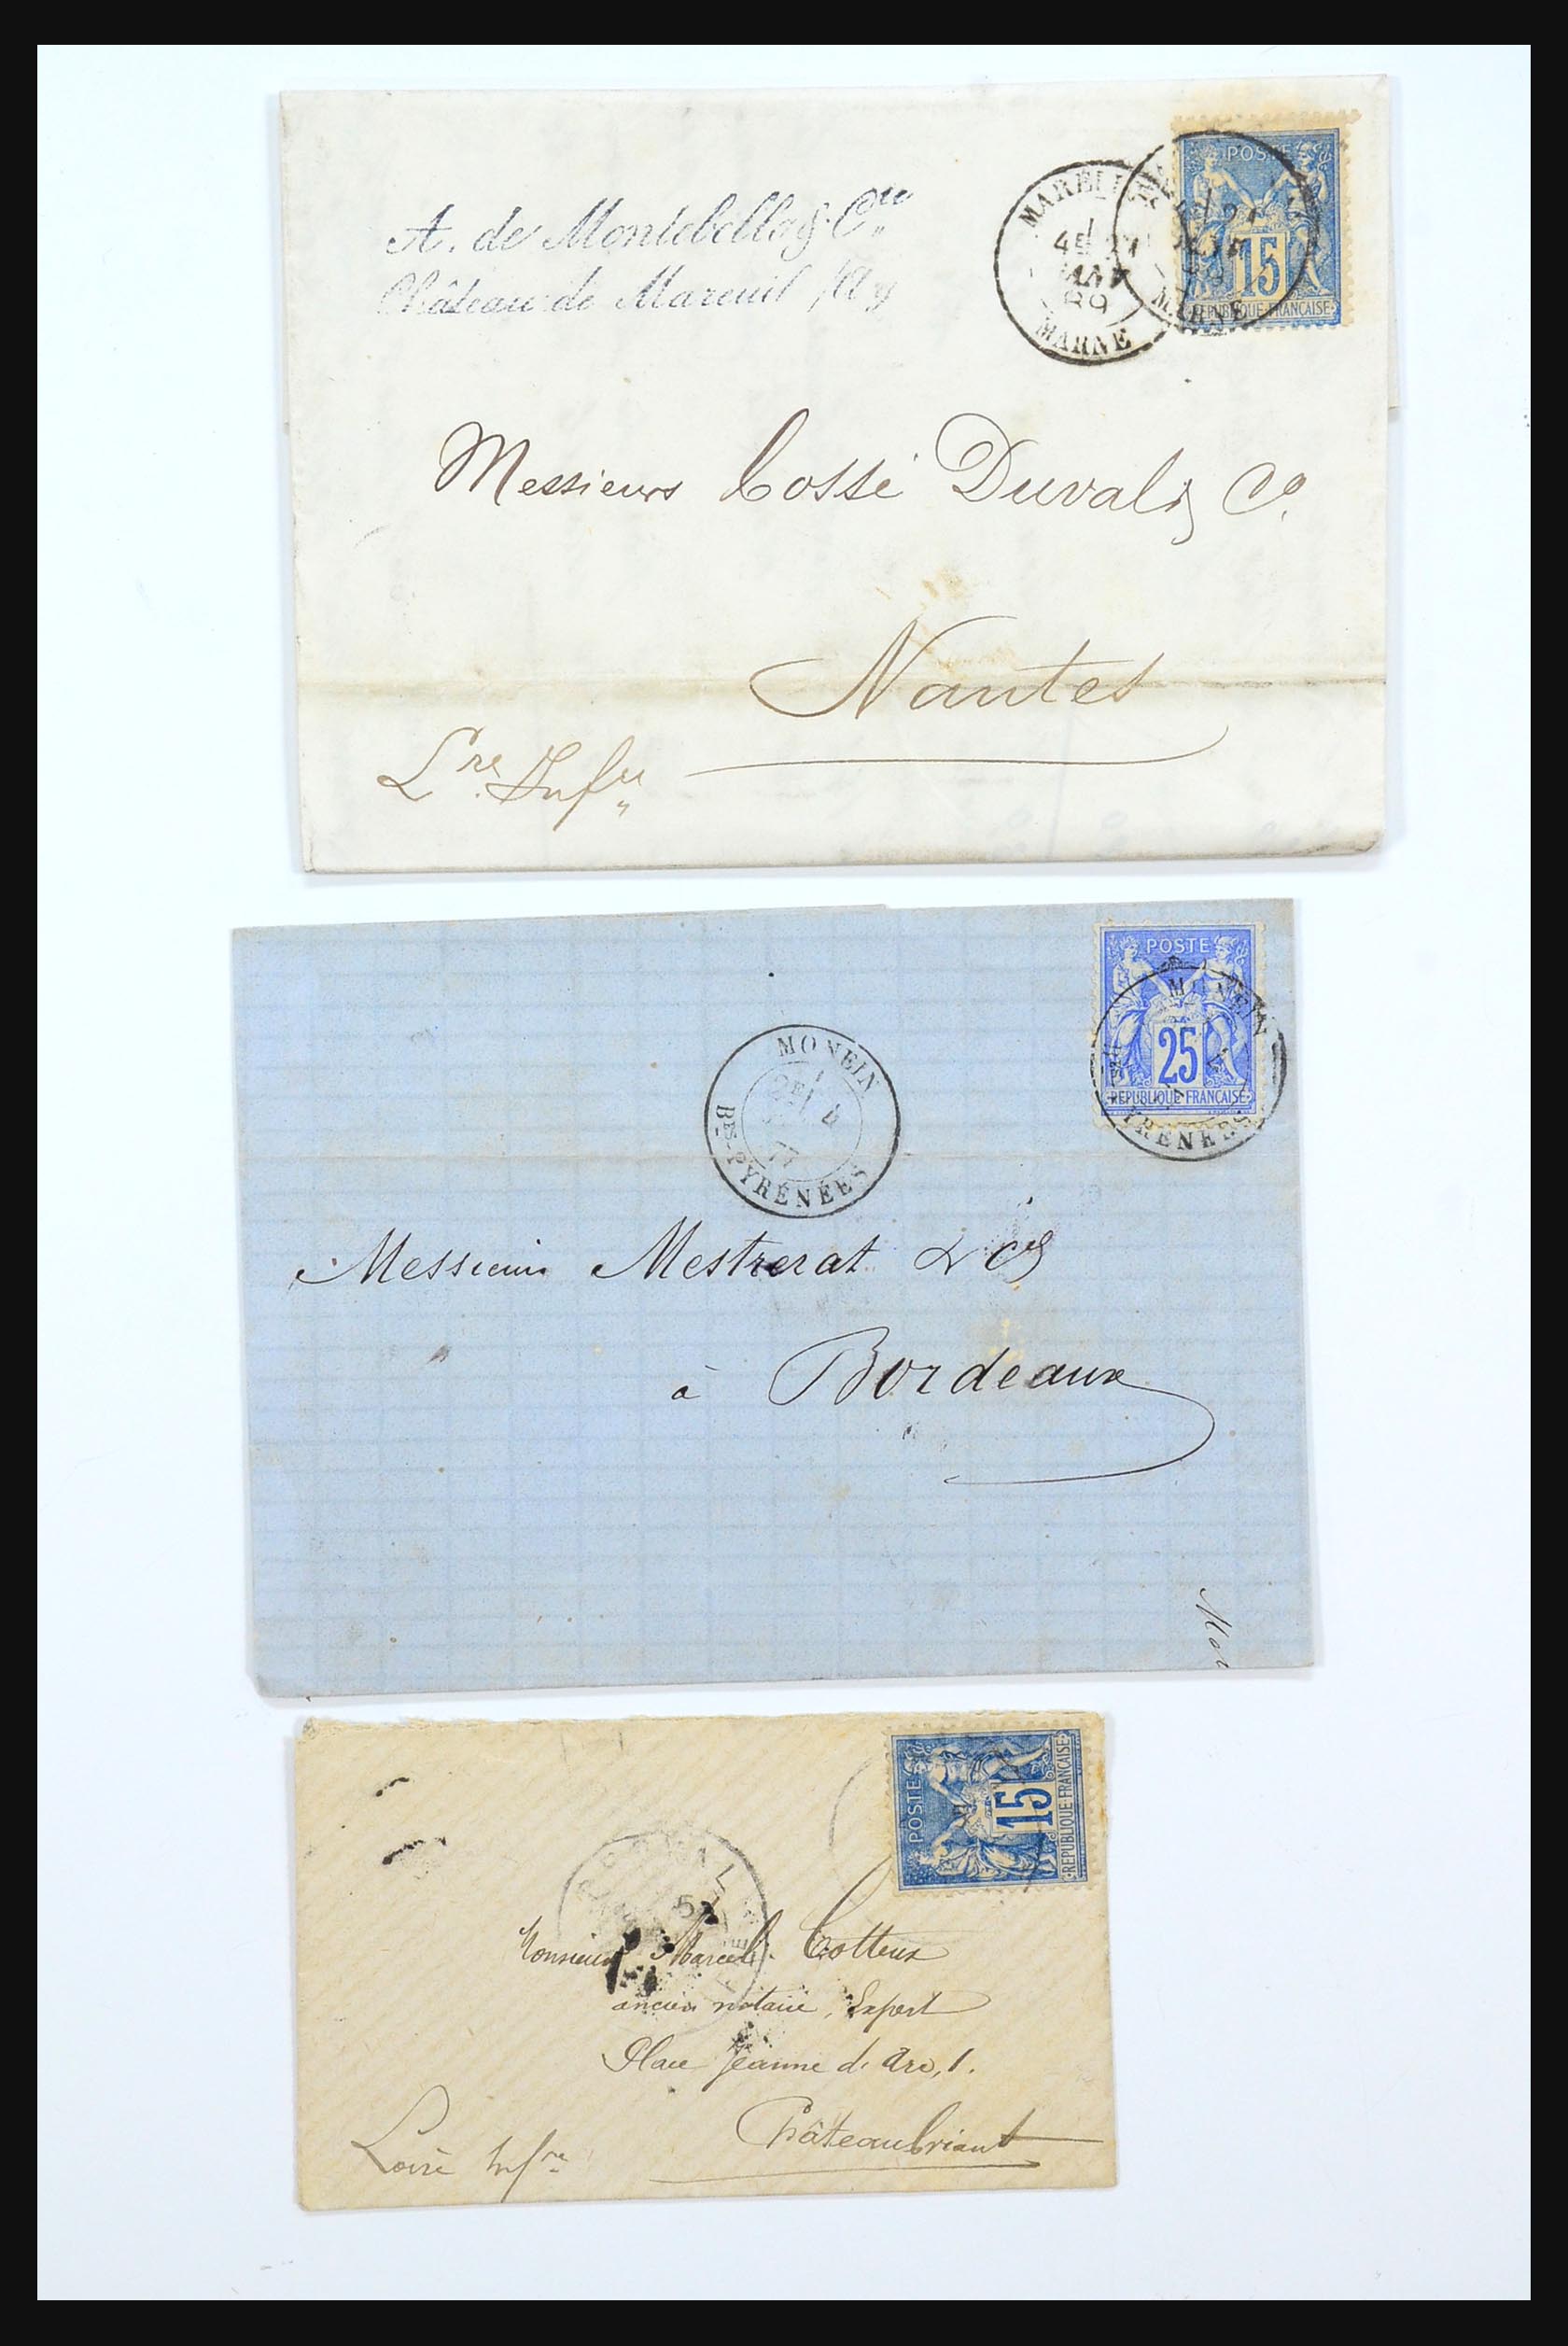 A. de Montebello & Cie
Château de Mareuil s/Ay
MAREUIL
4E 27
JANV
89
MARNE
MARNE
POSTE
15
REPUBLIQUE FRANÇAISE
Messieurs Cossé Duval & Co.
Nantes
Lre. Infre
POSTE
25
REPUBLIQUE FRANÇAISE
MONEIN
PYRÉNÉES
MONEIN
2E
4
77
BSES-PYRÉNÉES
Messieurs Mestrerat & Cie
à Bordeaux
POSTE
15
REPUBLIQUE FRANÇAISE
5
Monsieur Marcel Cotteux
ancien notaire, Expert
Place Jeanne d'Arc, 1.
Châteaubriant
Loire Infre